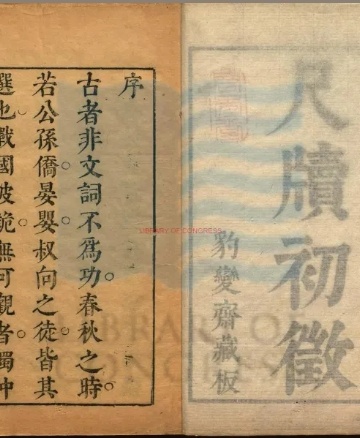 尺牘初徵
豹變齋藏板
序
古者非文詞不爲功春秋之時
若公孫僑晏嬰叔向之徒皆其
選也戰國波詭無可觀者獨仲
LIBRARY OF CONGRESS